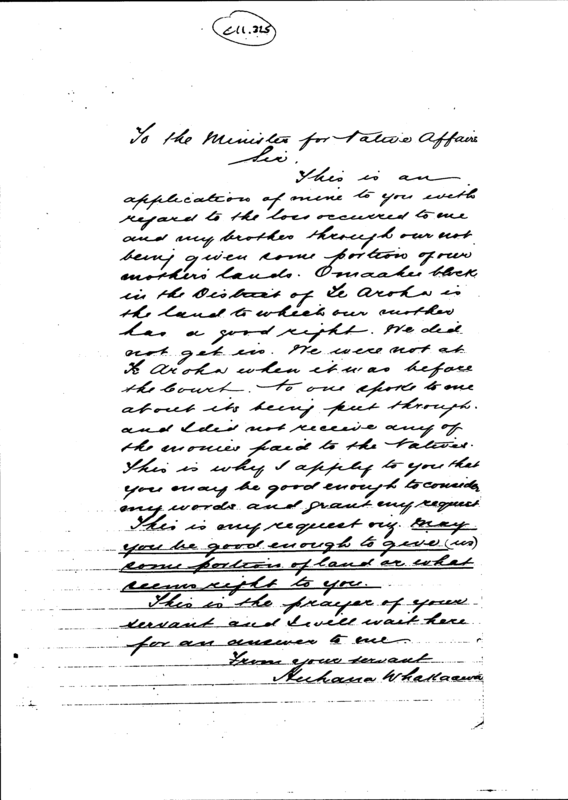 C11.325
To the Minister for Native Affairs
Sir,
This is an
application of mine to you with
regard to the loss occurred to me
and my brother through our not
being given some portion of our
mother's lands. Omaahei block
in the District of Te Aroha is
the land to which our mother
has a good right. We did
not get in. We were not at
Te Aroha when it was before
the Court. No one spoke to me
about its being put through.
and I did not receive any of
the monies paid to the Natives.
This is why I apply to you that
you may be good enough to consider
my words and grant my request
This is my request viz. May
you be good enough to give (us)
some portion of land or what
seems right to you.
This is the prayer of your
servant and I will wait here
for an answer to me.
From your servant
Whakaawa